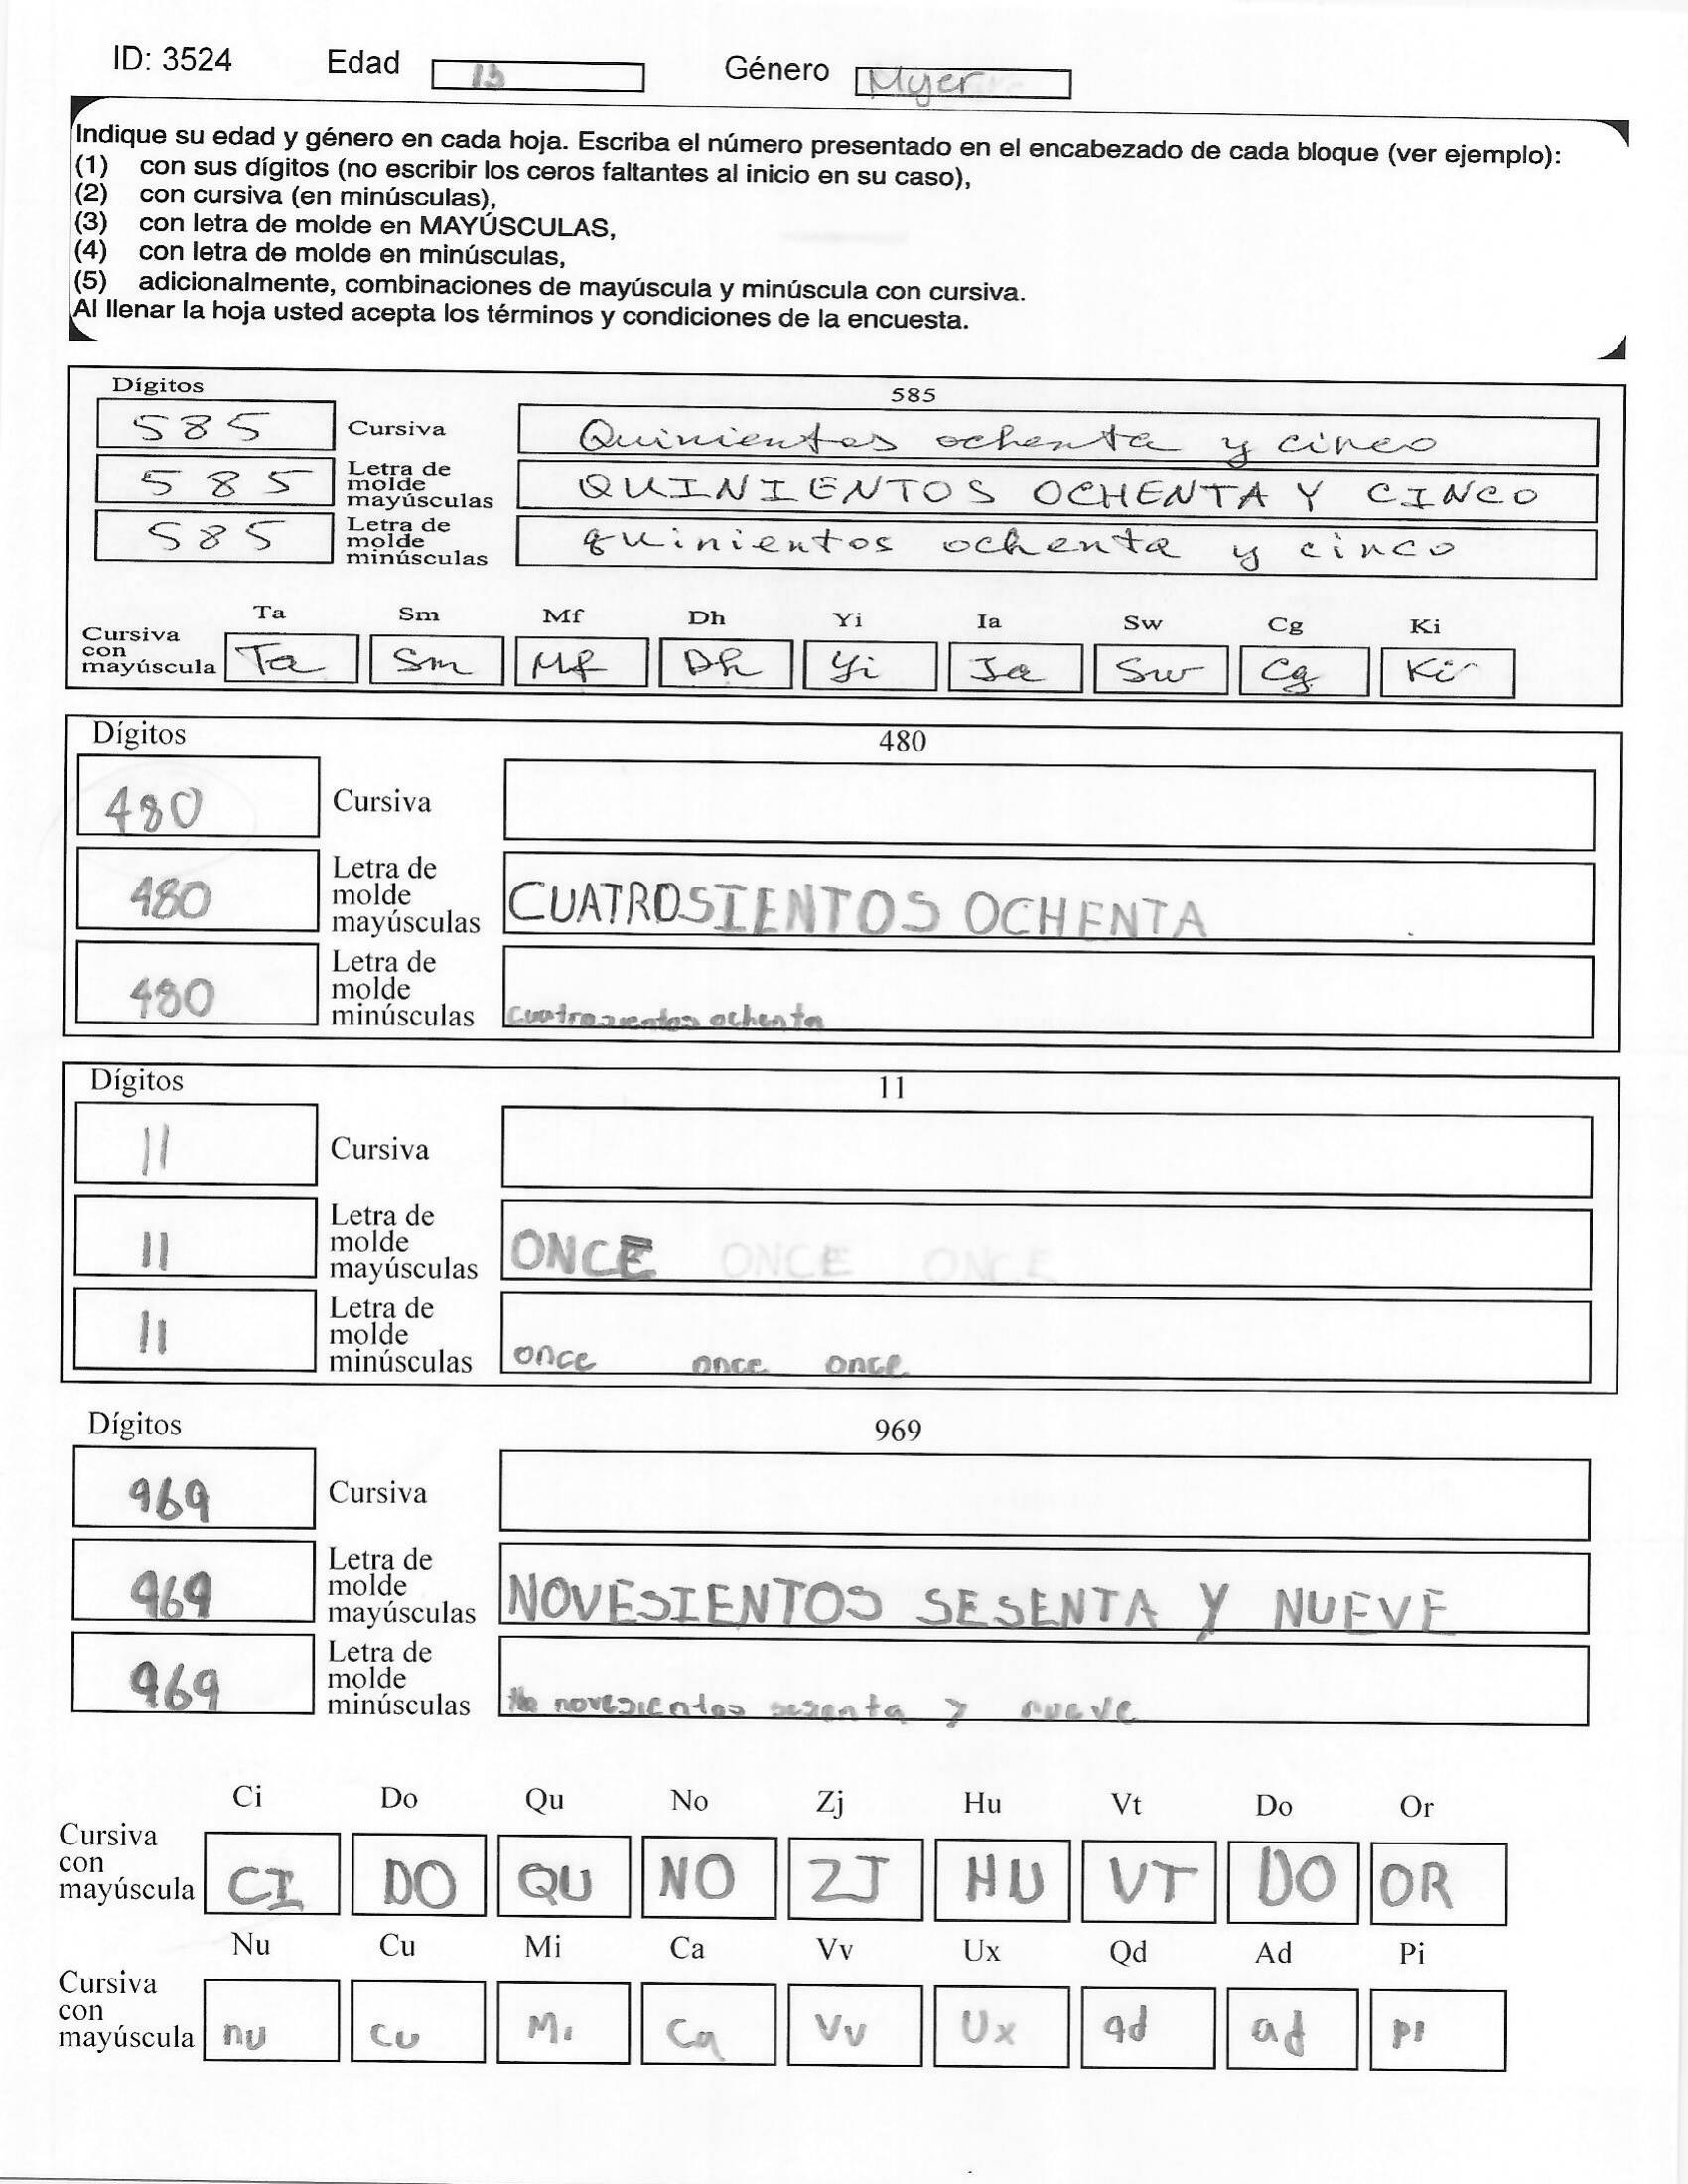 ID: 3524 Edad 13 Género Mujer
Indique su edad y género en cada hoja. Escriba el número presentado en el encabezado de cada bloque (ver ejemplo):
(1) con sus dígitos (no escribir los ceros faltantes al inicio en su caso),
(2) con cursiva (en minúsculas),
(3) con letra de molde en MAYÚSCULAS,
(4) con letra de molde en minúsculas,
(5) adicionalmente, combinaciones de mayúscula y minúscula con cursiva.
Al llenar la hoja usted acepta los términos y condiciones de la encuesta.
Dígitos 585
585 Cursiva Quinientos ochenta y cinco
585 Letra de molde mayúsculas QUINIENTOS OCHENTA Y CINCO
585 Letra de molde minúsculas quinientos ochenta y cinco
Ta Sm Mf Dh Yi Ia Sw Cg Ki
Cursiva con mayúscula Ta Sm Mf Dh Yi Ia Sw Cg Ki
Dígitos 480
480 Cursiva
480 Letra de molde mayúsculas CUATROSIENTOS OCHENTA
480 Letra de molde minúsculas cuatrosientos ochenta
Dígitos 11
11 Cursiva
11 Letra de molde mayúsculas ONCE ONCE ONCE
11 Letra de molde minúsculas once once once
Dígitos 969
969 Cursiva
969 Letra de molde mayúsculas NOVESIENTOS SESENTA Y NUEVE
969 Letra de molde minúsculas novesientos sesenta y nueve
Ci Do Qu No Zj Hu Vt Do Or
Cursiva con mayúscula CI DO QU NO ZJ HU VT DO OR
Nu Cu Mi Ca Vv Ux Qd Ad Pi
Cursiva con mayúscula nu cu Mi Ca Vv Ux qd ad pi